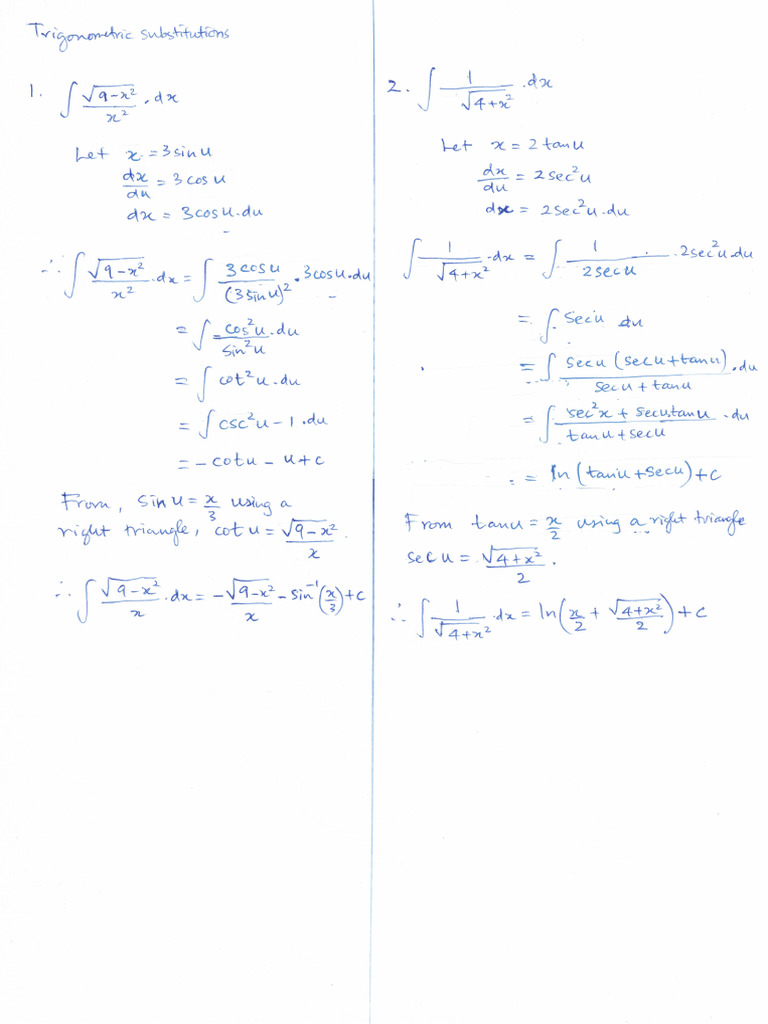 Trigonometric substitutions
1. ∫ √(9-x²)/x² . dx
Let x = 3 sin u
dx/du = 3 cos u
dx = 3 cos u . du
∴ ∫ √(9-x²)/x² . dx = ∫ 3 cos u/(3 sin u)² . 3 cos u . du
= ∫ cos²u/sin²u . du
= ∫ cot²u . du
= ∫ csc²u - 1 . du
= - cot u - u + c
From, sin u = x/3 using a
right triangle, cot u = √(9-x²)/x .
∴ ∫ √(9-x²)/x . dx = - √(9-x²)/x - sin⁻¹(x/3) + c
2. ∫ 1/√(4+x²) . dx
Let x = 2 tan u
dx/du = 2 sec²u
dx = 2 sec²u . du
∫ 1/√(4+x²) . dx = ∫ 1/(2 sec u) . 2 sec²u . du
= ∫ sec u du
= ∫ sec u (sec u + tan u)/(sec u + tan u) . du
= ∫ (sec²x + sec u tan u)/(tan u + sec u) . du
= ln (tan u + sec u) + c
From tan u = x/2 using a right triangle
sec u = √(4+x²)/2 .
∴ ∫ 1/√(4+x²) . dx = ln(x/2 + √(4+x²)/2) + c